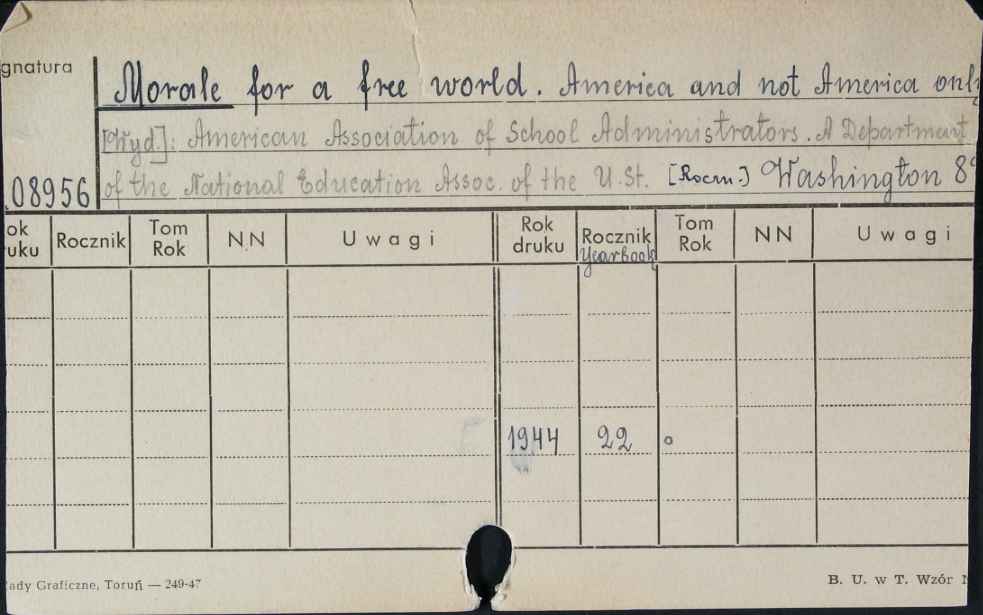 gnatura
Morale for a free world. America and not America only
[Wyd]: American Association of School Administrators. A Department
08956 of the National Education Assoc. of the U.St. [Roczn.] Washington 8°
ok uku Rocznik Tom Rok NN Uwagi Rok druku Rocznik Yearbook Tom Rok NN Uwagi
1944 22 o
ady Graficzne, Toruń — 249-47 B. U. w T. Wzór